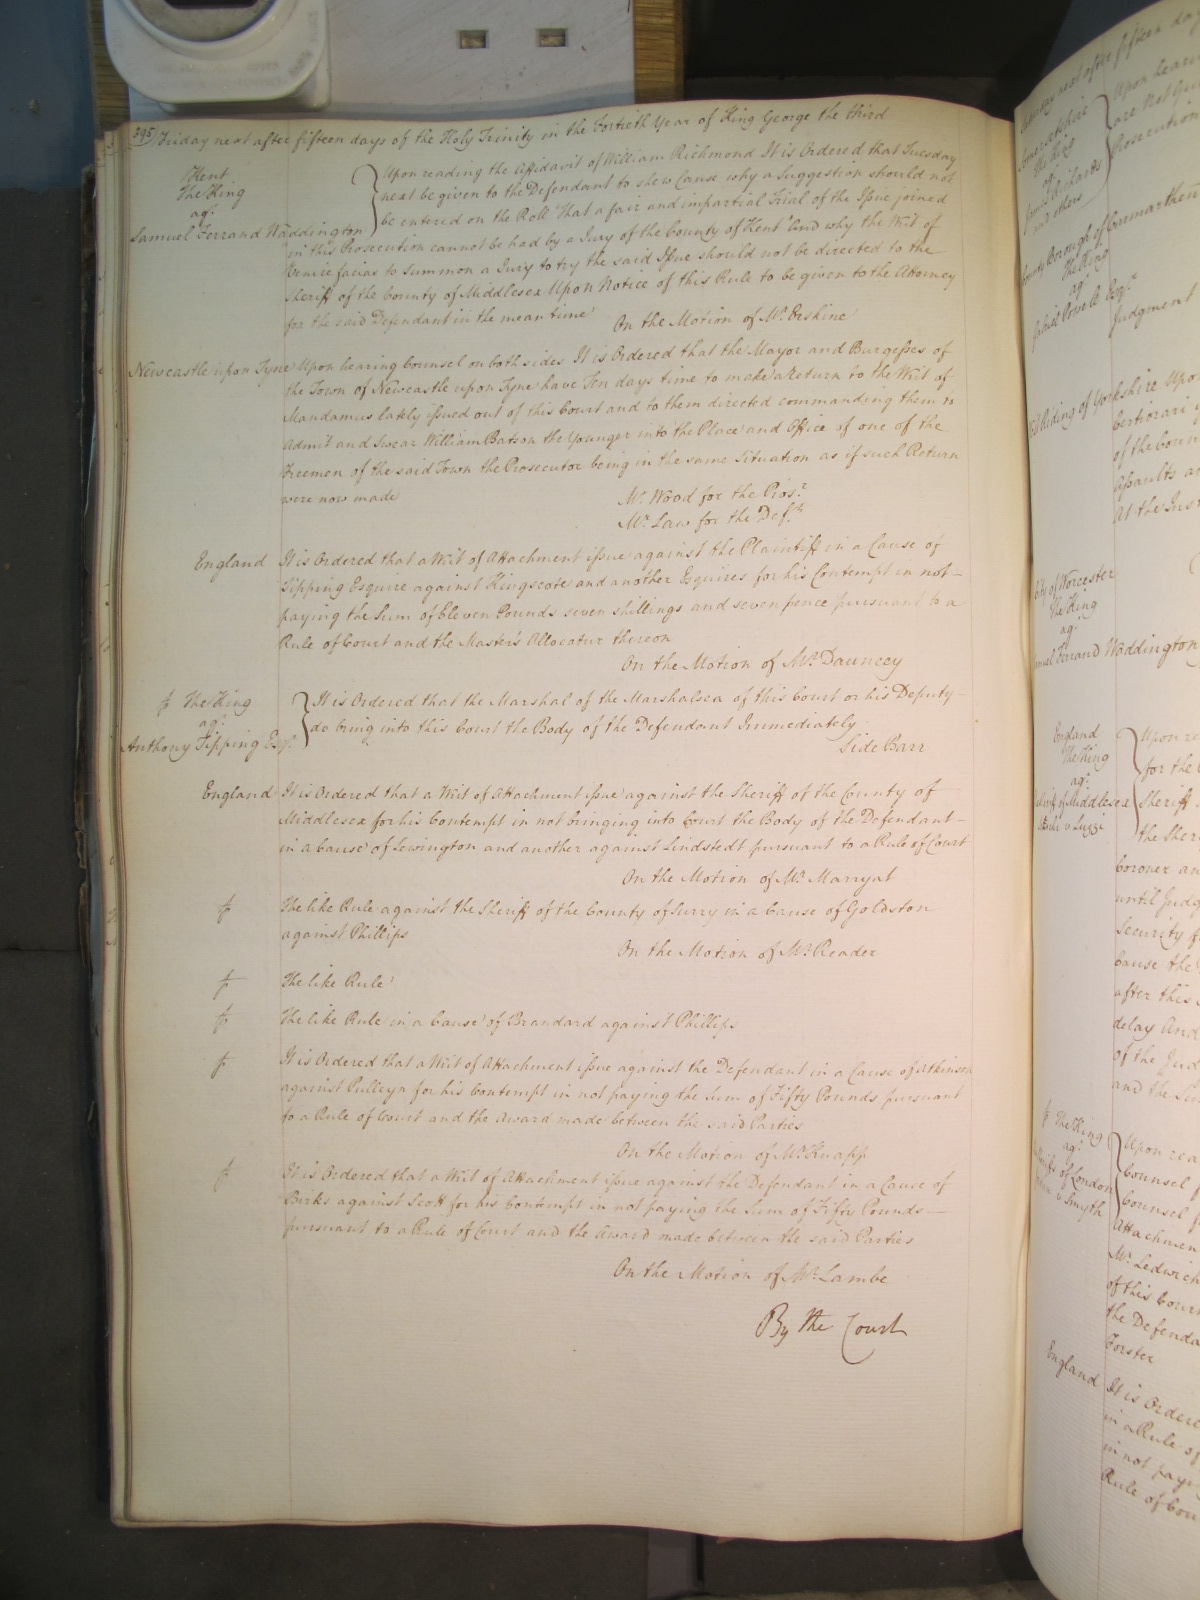 395
Friday next after fifteen days of the Holy Trinity in the Fortieth Year of King George the third
Kent
The King
agt
Samuel Ferrand Waddington
Upon reading the Affidavit of William Richmond It is Ordered that Tuesday
next be given to the Defendant to shew Cause why a Suggestion should not
be entered on the Roll That a fair and impartial Trial of the Issue joined
in this Prosecution cannot be had by a Jury of the County of Kent And why the Writ of
Venire facias to Summon a Jury to try the said Issue should not be directed to the
Sheriff of the County of Middlesex Upon Notice of this Rule to be given to the Attorney
for the said Defendant in the mean time
On the Motion of Mr. Erskine
Newcastle upon Tyne Upon hearing Counsel on both sides It is Ordered that the Mayor and Burgesses of
the Town of Newcastle upon Tyne have Ten days time to make a Return to the Writ of
Mandamus lately issued out of this Court and to them directed commanding them to
Admit and Swear William Batson the Younger into the Place and Office of one of the
Freemen of the said Town the Prosecutor being in the same Situation as if such Return
were now made
Mr. Wood for the Prosr.
Mr. Law for the Defts.
England It is Ordered that a Writ of Attachment issue against the Plaintiff in a Cause of
Tipping Esquire against Kingscote and another Esquires for his Contempt in not
paying the Sum of Eleven Pounds seven shillings and seven pence pursuant to a
Rule of Court and the Master's Allocatur thereon
On the Motion of Mr. Dauncey
The King
agt
Anthony Tipping Esqr.
It is Ordered that the Marshal of the Marshalsea of this Court or his Deputy
do bring into this Court the Body of the Defendant Immediately
Side Barr
England It is Ordered that a Writ of Attachment issue against the Sheriff of the County of
Middlesex for his Contempt in not bringing into Court the Body of the Defendant
in a Cause of Lewington and another against Lindstedt pursuant to a Rule of Court
On the Motion of Mr. Marryat
The like Rule against the Sheriff of the County of Surry in a Cause of Goldston
against Phillips
On the Motion of Mr. Reader
The like Rule
The like Rule in a Cause of Brandard against Phillips
It is Ordered that a Writ of Attachment issue against the Defendant in a Cause of Atkinson
against Pulleyn for his Contempt in not paying the Sum of Fifty Pounds pursuant
to a Rule of Court and the Award made between the said Parties
On the Motion of Mr. Knapp
It is Ordered that a Writ of Attachment issue against the Defendant in a Cause of
Birks against Scott for his Contempt in not paying the Sum of Fifty Pounds
pursuant to a Rule of Court and the Award made between the said Parties
On the Motion of Mr. Lambe
By the Court
Upon hearing
are Not Gui
Prosecution
County Borough of Carmarthen
The King
agt
Judgment
Riding of Yorkshire Upon
Certiorari
of the Coun
Assaults an
At the Ins
City of Worcester
The King
agt
Ferrand Waddington
England
The King
agt
Sheriff of Middlesex
Upon re
for the
Sheriff
the Sher
Coroner an
until Judg
Security f
Cause the
after this
delay And
of the Jud
and the
The King
agt
Sheriffs of London
v Smyth
Upon rea
Counsel f
Counsel f
Attachmen
Mr. Ledwich
of this Cour
the Defenda
Forster
England It is Ordere
in a Rule of
in not payi
Rule of Cou